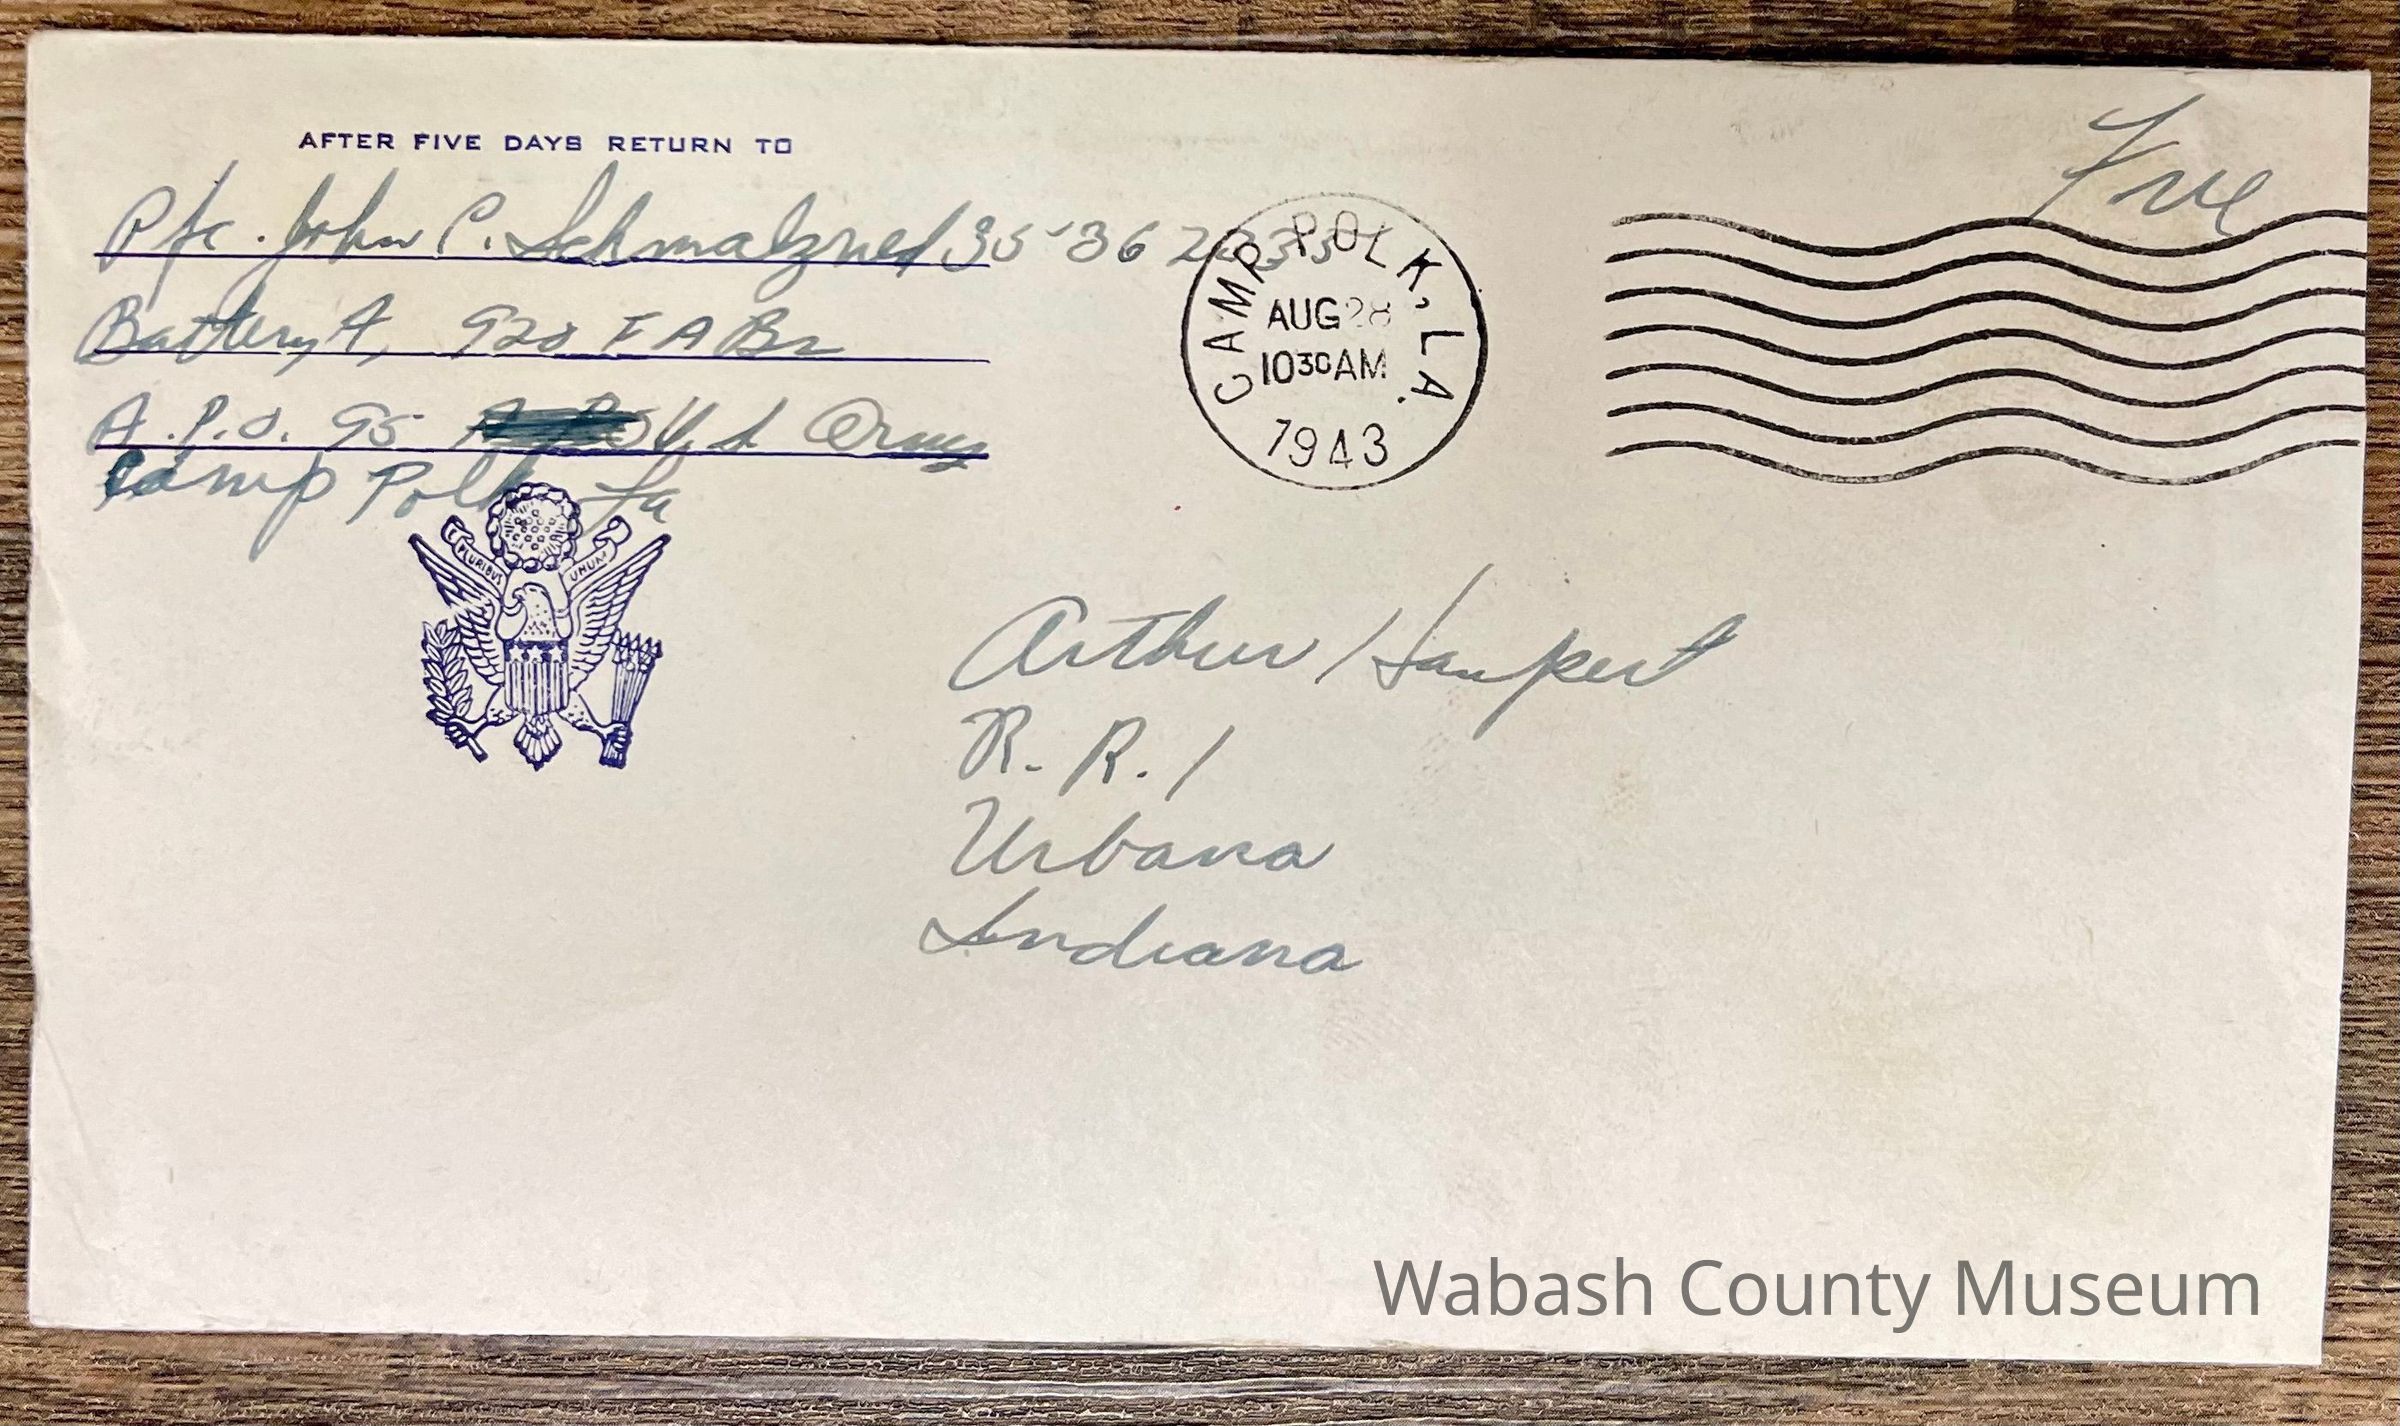 AFTER FIVE DAYS RETURN TO
Free
Pfc. John C. Schmalzried 35 36 2233
Battery A, 920 F A Bn
A.P.O. 95 U.S Army
Camp Polk La
CAMP POLK, LA.
AUG 28
10 30 AM
1943
E PLURIBUS UNUM
Arthur Haupert
R. R. 1
Urbana
Indiana
Wabash County Museum